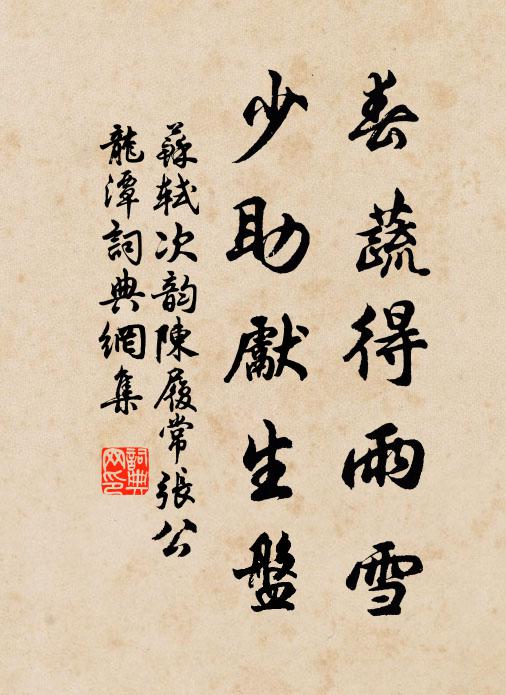 春蔬得雨雪
少助獻生盤
蘇軾次韵陳履常張公
龍潭詞典網集
詞典
网印